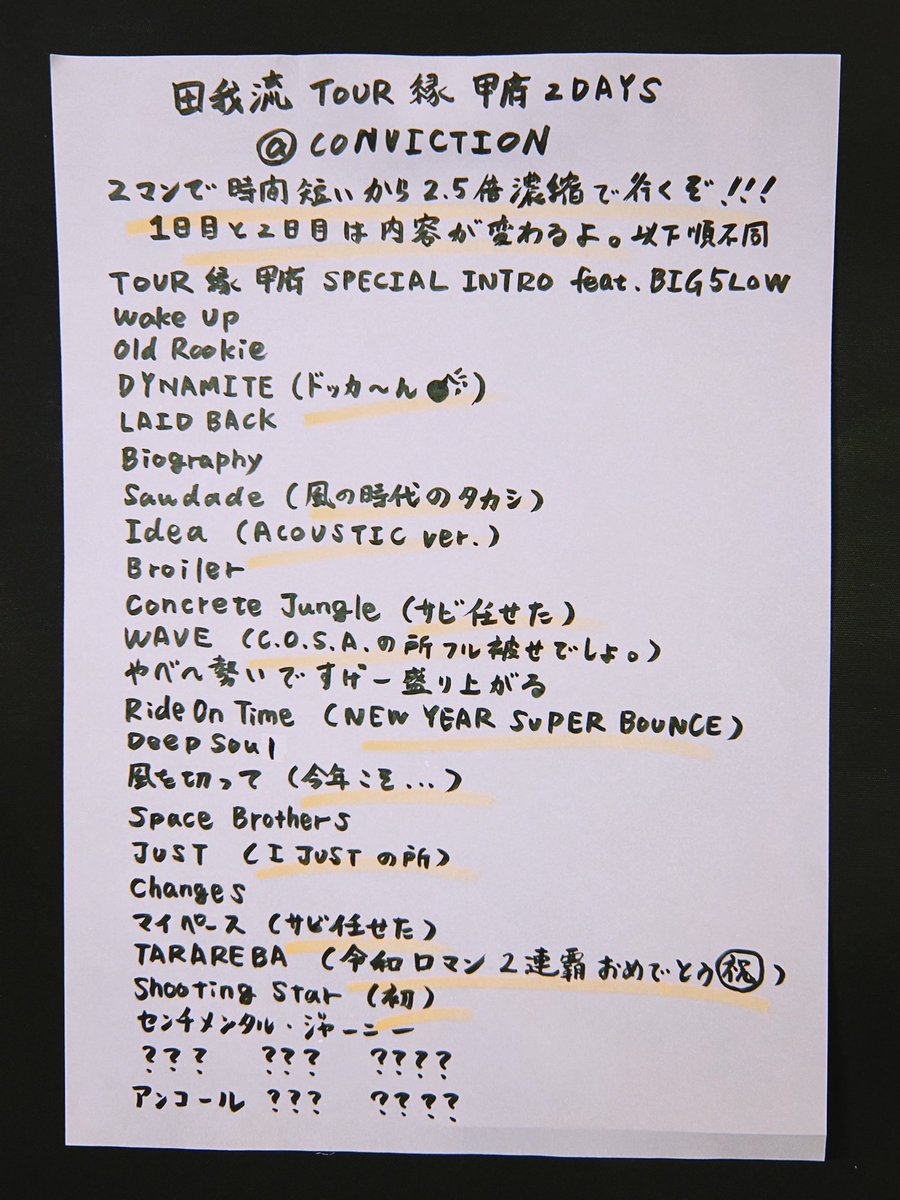 田我流 TOUR 縁 甲府 2DAYS
@ CONVICTION
2マンで時間短いから2.5倍濃縮で行くぞ!!!
1日目と2日目は内容が変わるよ。以下順不同
TOUR 縁 甲府 SPECIAL INTRO feat. BIG5LOW
Wake Up
Old Rookie
DYNAMITE (ドッカ〜ん💣)
LAID BACK
Biography
Saudade (風の時代のタカシ)
Idea (ACOUSTIC ver.)
Broiler
Concrete Jungle (サビ任せた)
WAVE (C.O.S.A.の所フル被せでしょ。)
やべー勢いですげー盛り上がる
Ride On Time (NEW YEAR SUPER BOUNCE)
Deep Soul
風を切って (今年こそ...)
Space Brothers
JUST (I JUST の所)
Changes
マイペース (サビ任せた)
TARAREBA (令和ロマン2連覇おめでとう㊗)
Shooting Star (初)
センチメンタル・ジャーニー
??? ??? ????
アンコール ??? ????